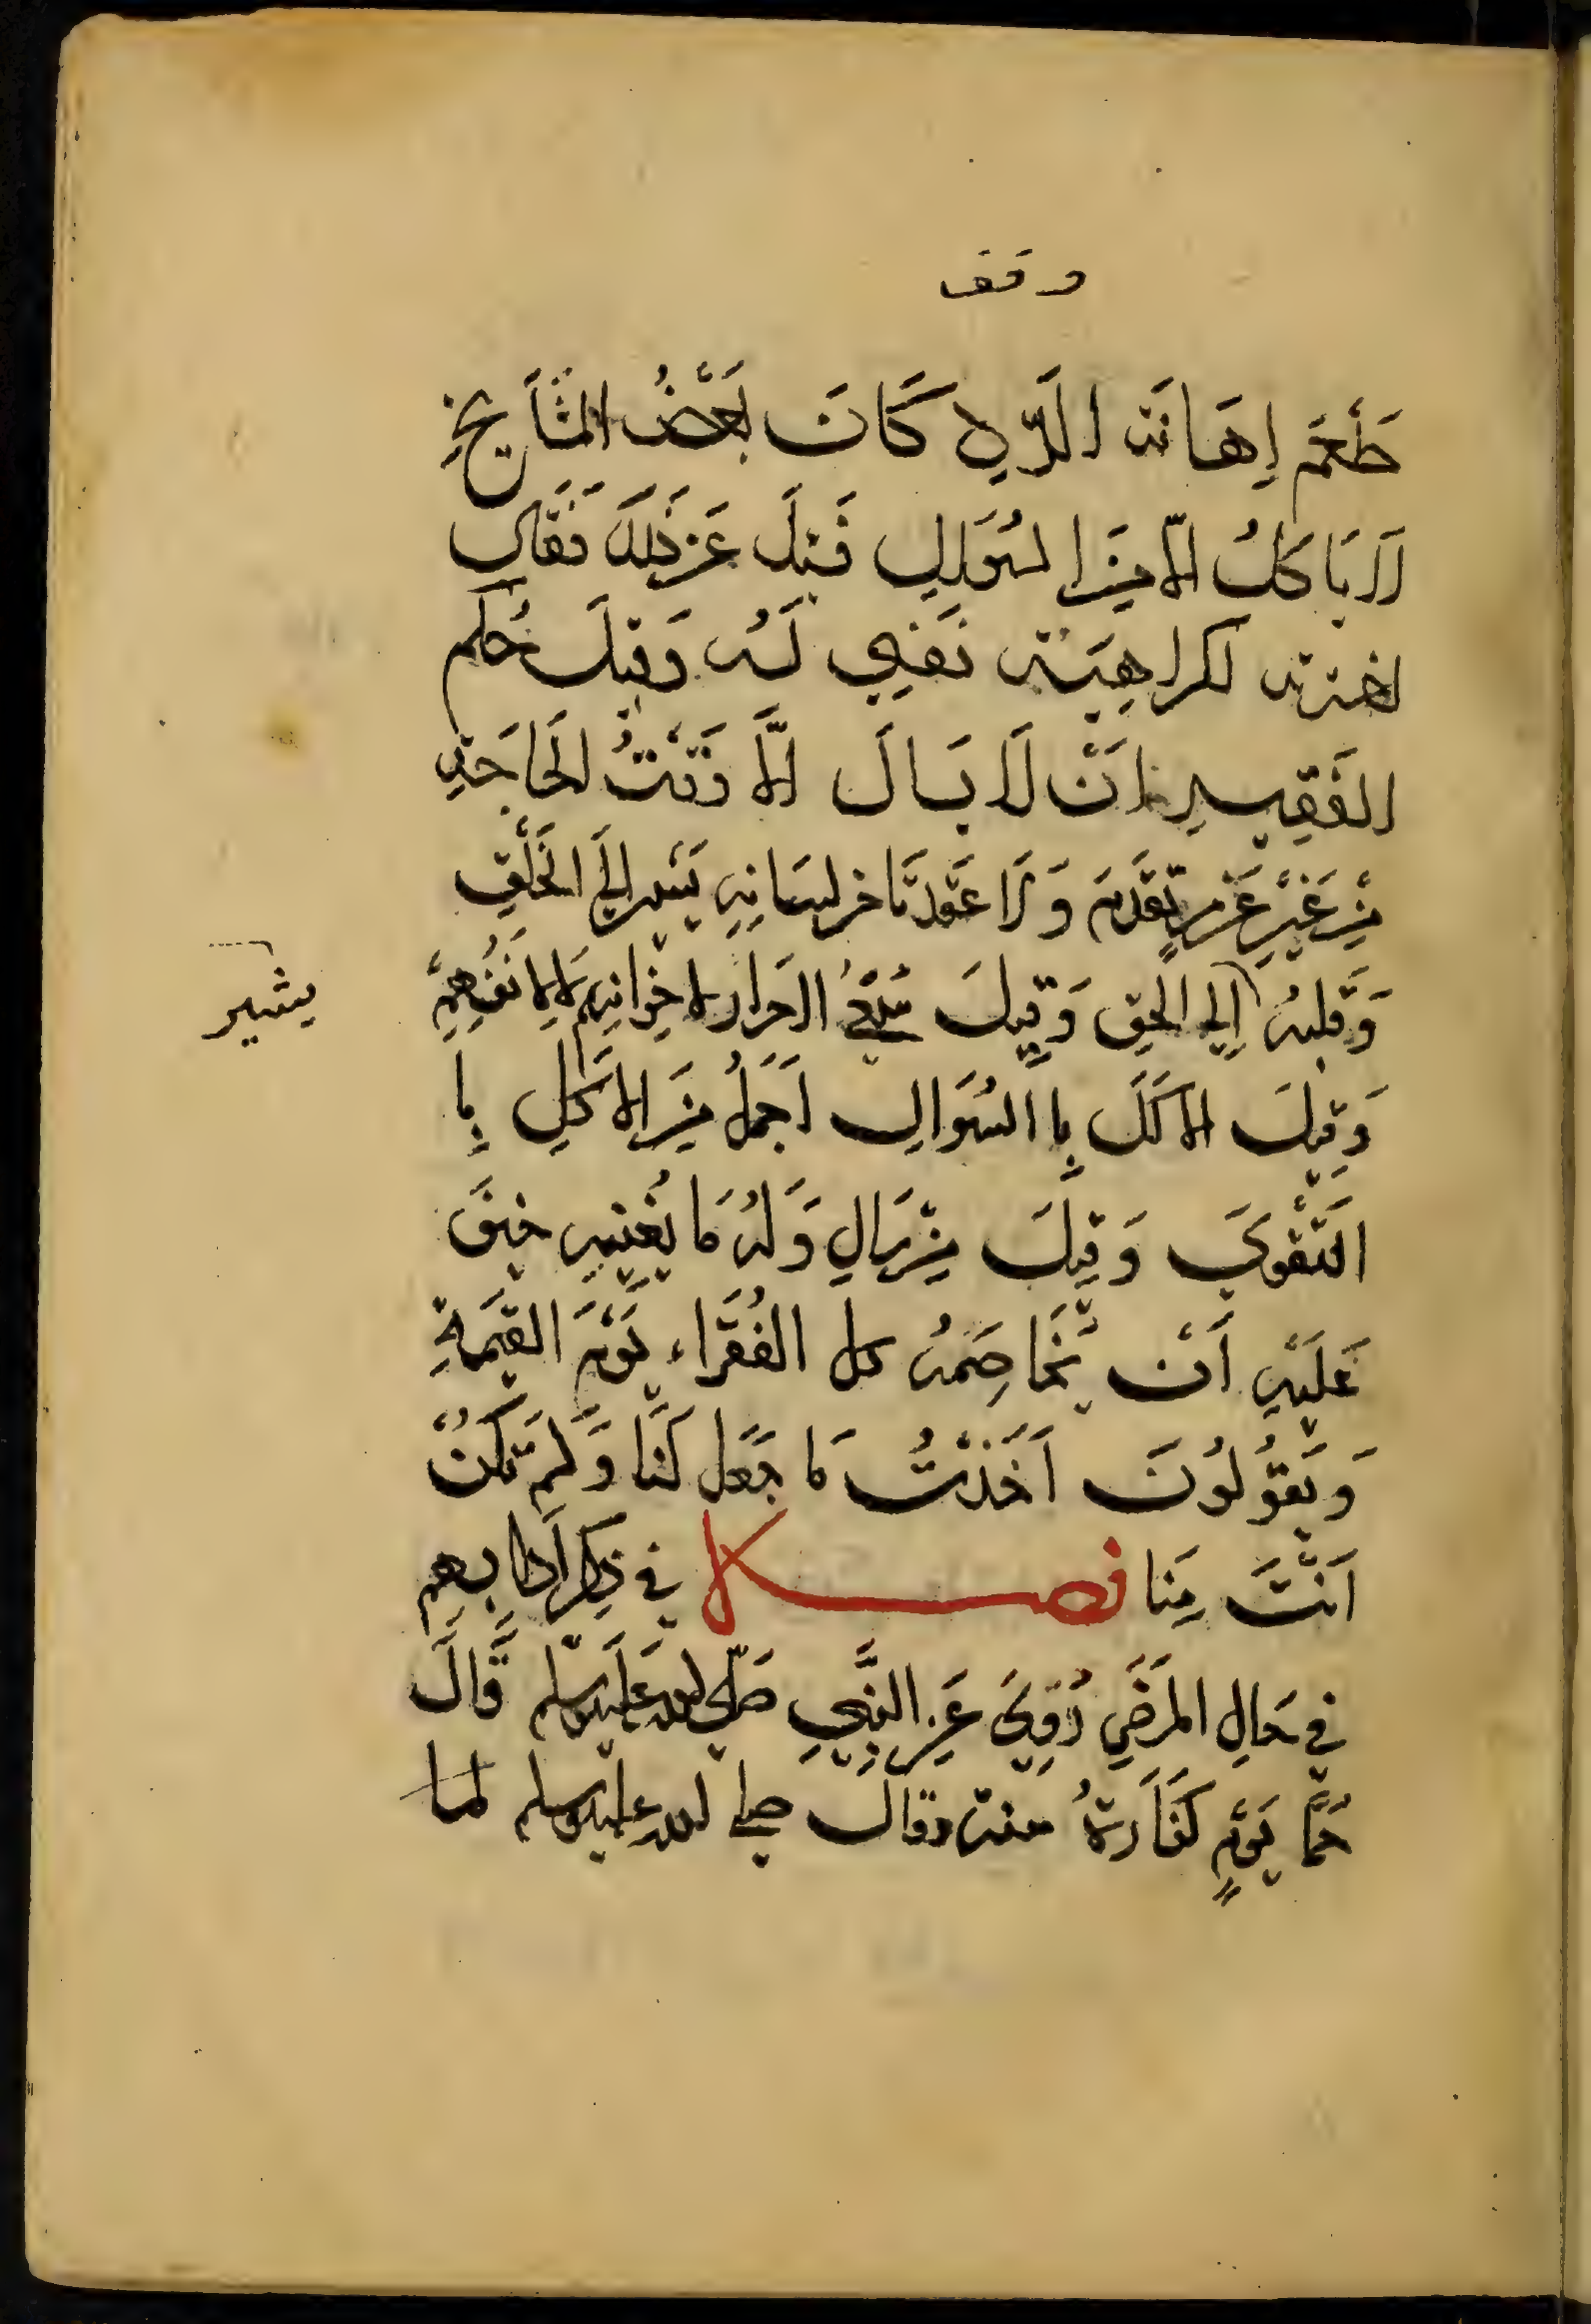 وقف
طَعْمَ إِهَانَة الَّذِي كَانَ بَعْضُ المشَايخِ
لَا يَاكلُ الا مِنَ السُوَالِ فَقِيلَ عَن ذَلِكَ فَقَال
اخترته لكراهِيَته نَفسِي لَه وَقيلَ حُكم
الفَقِيرِ اَنْ لَا يَسالَ الَّا وَقْتُ الحَاجَةِ
مِنْ غَيْرِ تقَدَّمَ وَلَا عَقد تَاخر لسَانِهِ يَشير الي الخَلْقِ
وَقلبهُ إلي الحَقِ وَقِيلَ الاحرار لاخِوانِهِم لا لِانفُسِهِمْ
يشير
وَقِيلَ الاكلَ بِالسُوَالِ اَجمَلُ مِنَ الاكلِ بِا
التَقْوَي وَقِيلَ مِنْ سَالَ وَلهُ مَا يُغنِيهِ خيفَ
عَلَيْهِ أَنْ يُخَاصِمهُ كل الفُقَراء يَوْمَ القيمَةِ
وَيَقُولُونَ اَخَذْتُ مَا جَعَل لنَا وَلَم تَكُنْ
اَنْتَ مِنا فصل في ذِكر اَدَابهِم
في حَالِ المرَضِ رُوِيَ عَنِ النَبِيِ صَلي الله عَلَيه وسَلم قَالَ
حُمَّا يَوْمٍ كفَارَةُ سنة وقال صلي الله عليه وسلم لما